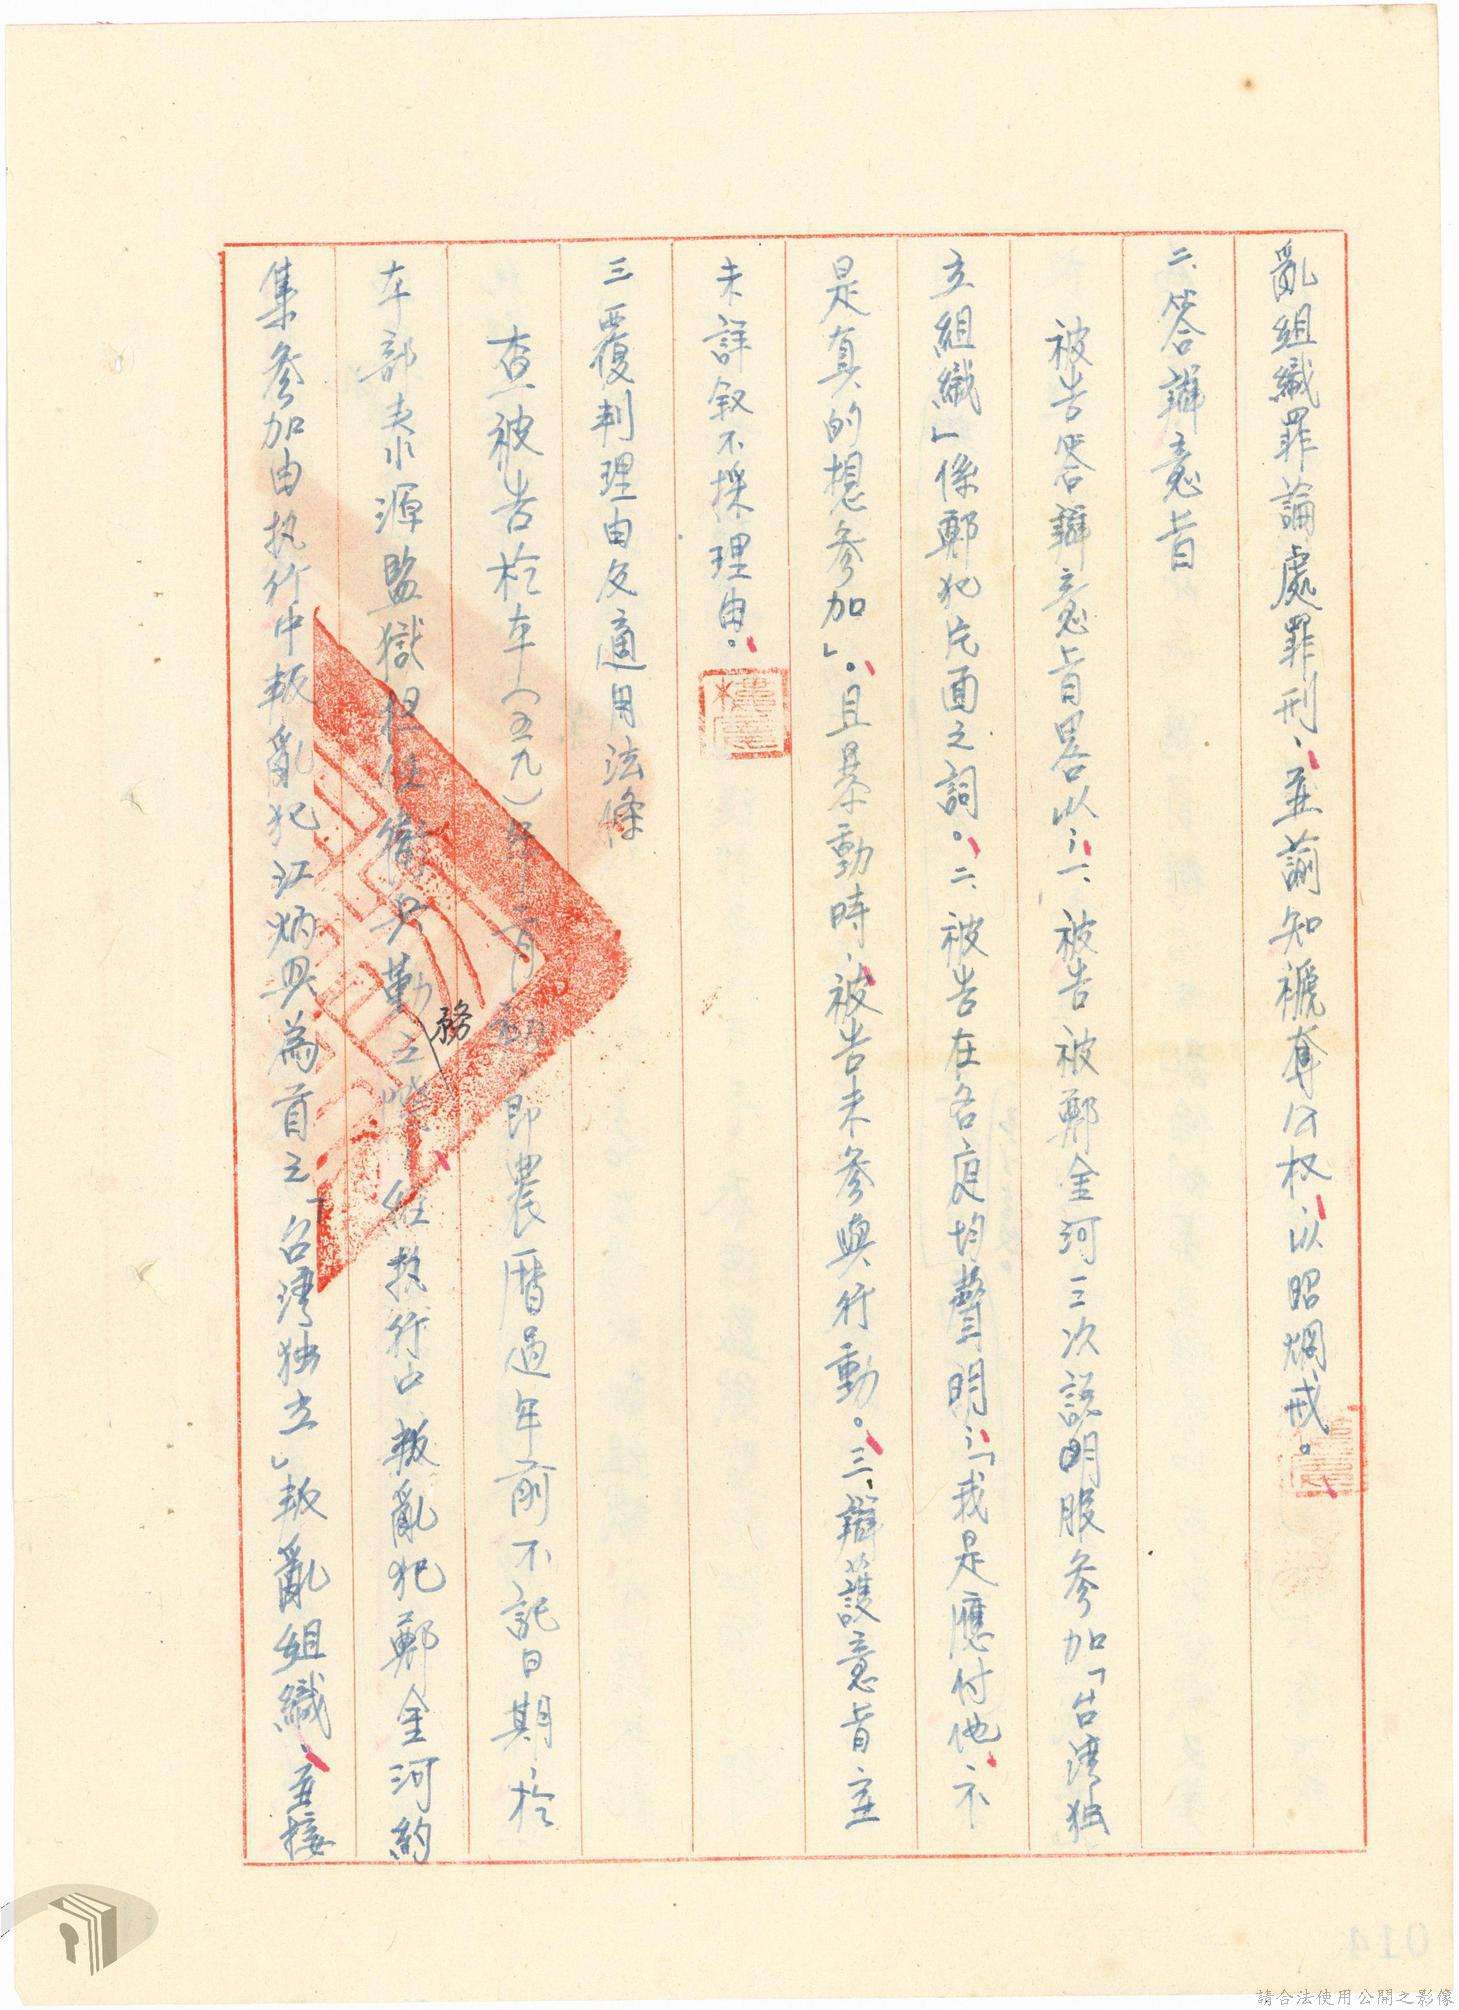 亂組織罪論處罪刑，並諭知褫奪公权，以昭烱戒。
二、答辯意旨
被告答辯意旨畧以：一、被告被鄭金河三次說明服參加「台湾独
立組織」係鄭犯片面之詞。二、被告在各庭均聲明：「我是應付他，不
是真的想參加」。且暴動時，被告未參與行動。三、辯護意旨並
未詳叙不採理由。
三覆判理由及適用法條
查被告於本（五九）年二月初，即農曆過年前不記日期，於
本部泰源監獄担任衞兵勤務之際，經執行中叛亂犯鄭金河約
集參加由执行中叛亂犯江炳興為首之「台湾独立」叛亂組織，並接
014
請合法使用公開之影像